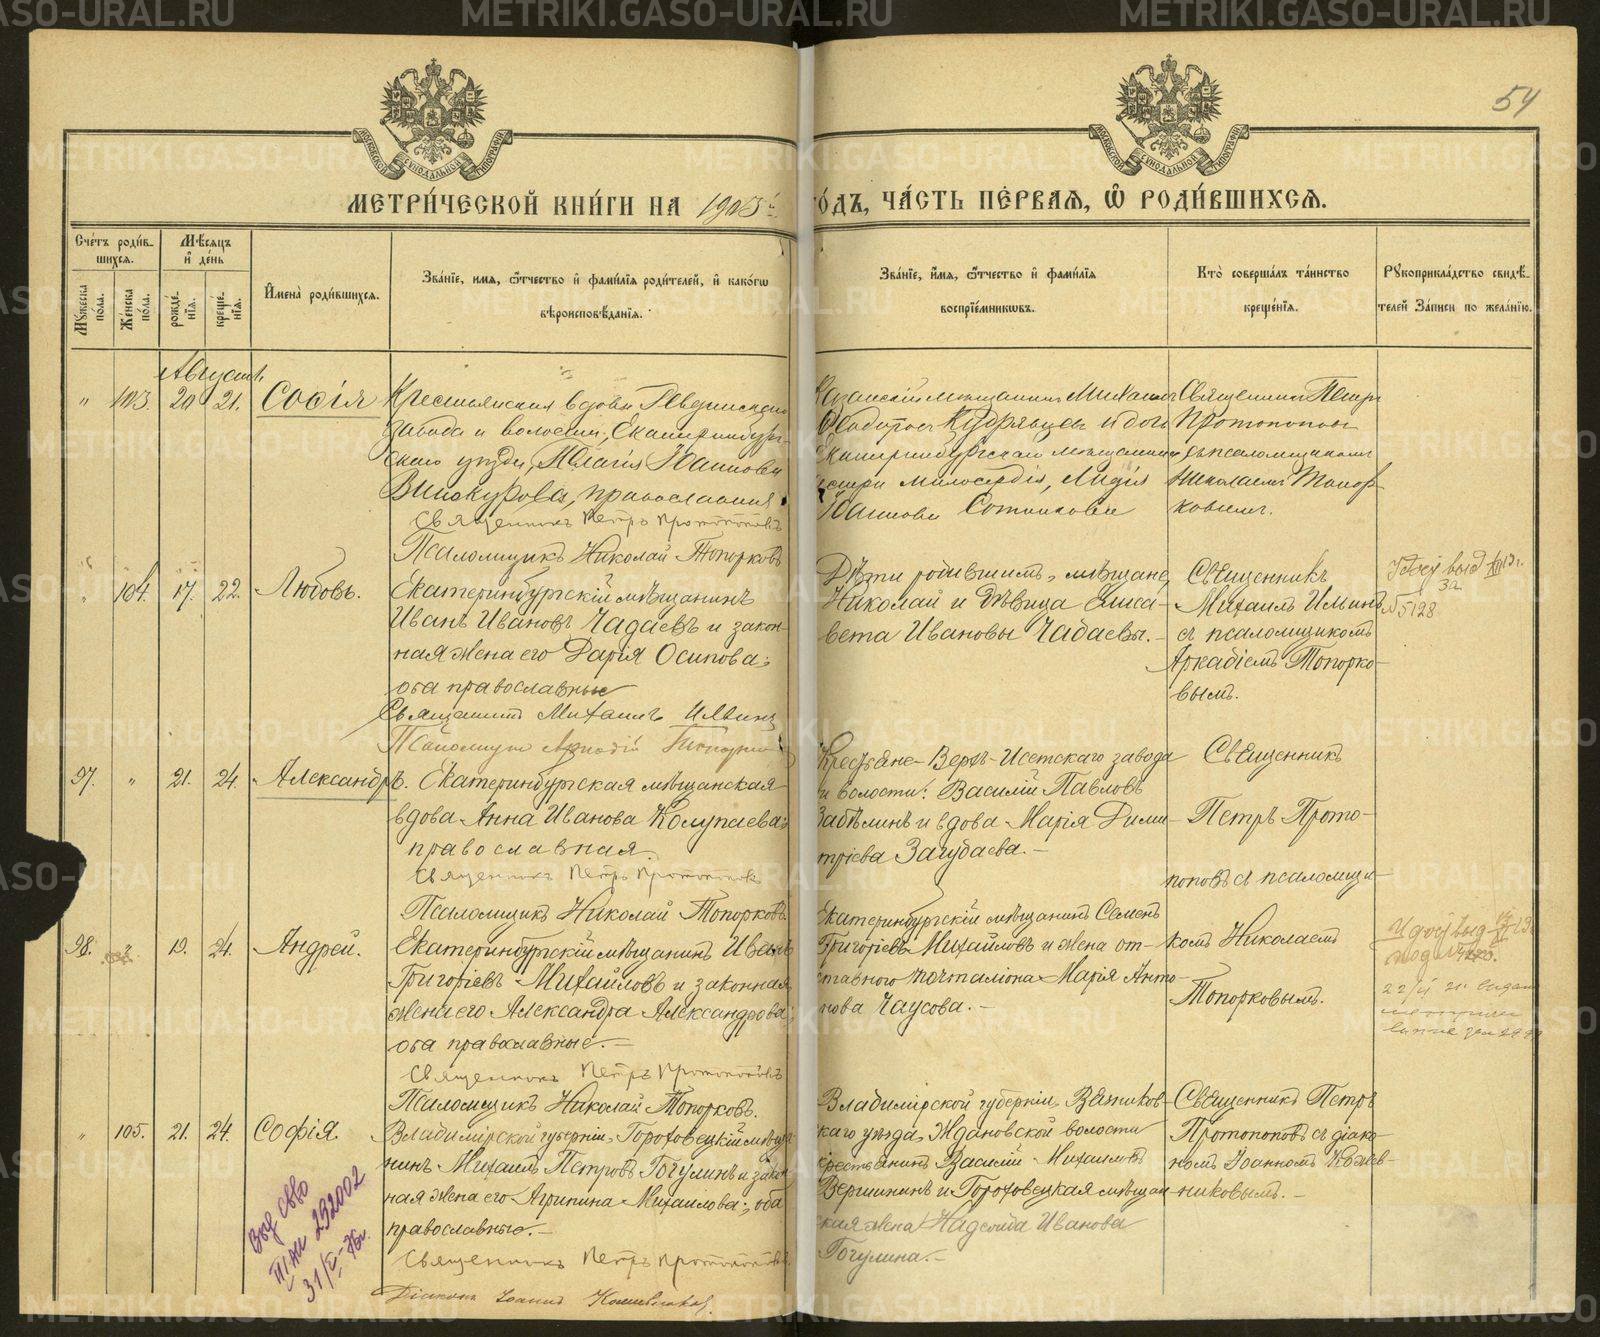 54
МЕТРИ́ЧЕСКОЙ КНИ́ГИ НА 1903 ГО́ДЪ, ЧА́СТЬ ПЕ́РВАЯ, Ѡ РОДИ́ВШИХСЯ.
Сче́тъ роди́вшихся.
Му́жеска по́ла.
Же́нска по́ла.
Мѣ́сяцъ и де́нь
рожде́нїя.
креще́нїя.
И҆мена̀ роди́вшихся.
Зва́нїе, имя, ѻ҆́тчество и҆ фами́лїѧ роди́телей, и҆ како́гѡ вѣроисповѣ́данїѧ.
Зва́нїе, и҆́мя, ѻ҆́тчество и҆ фами́лїѧ воспрїе́мникѡвъ.
Кто̀ соверша́лъ та́инство креще́нїѧ.
Рꙋкоприкла́дство свидѣ́телей За́писи по жела́нїю.
Августъ
" 103. 20 21. Софія
Крестьянская вдова Ревдинскаго
завода и волости, Екатеринбург-
скаго уѣзда, Пелагія Іоаннова
Винокурова, православная
Священникъ Петръ Протопоповъ
Псаломщикъ Николай Топорковъ
Казанскій мѣщанинъ Михаилъ
Кудрявцевъ и дочь
Екатеринбургскаго мѣщанина
сестра милосердія, Лидія
Іоаннова Сотникова
Священникъ Петръ
Протопоповъ
съ псаломщикомъ
Николаемъ Топор-
ковымъ.
" 104. 17. 22. Любовь.
Екатеринбургскій мѣщанинъ
Иванъ Ивановъ Чадаевъ и закон-
ная жена его Дарія Осипова;
оба православные
Священникъ Михаилъ Ильинъ
Псаломщикъ Аркадій Топорковъ
Дѣти родившихъ, мѣщане,
Николай и дѣвица Елиса-
вета Ивановы Чадаевы.-
Священникъ
Михаилъ Ильинъ
съ псаломщикомъ
Аркадіемъ Топорко-
вымъ.
№5128
97. " 21. 24. Александръ.
Екатеринбургская мѣщанская
вдова Анна Иванова Колупаева;
православная.
Священникъ Петръ Протопоповъ
Псаломщикъ Николай Топорковъ
Крестьяне Верхъ-Исетскаго завода
и волости: Василій Павловъ
Забѣлинъ и вдова Марія Дими-
тріева Загубаева.-
Священникъ
Петръ Прото-
поповъ съ псаломщи-
комъ Николаемъ
Топорковымъ.
98. 19. 24. Андрей.
Екатеринбургскій мѣщанинъ Иванъ
Григорьевъ Михайловъ и законная
жена его Александра Александрова;
оба православные.-
Священникъ Петръ Протопоповъ
Псаломщикъ Николай Топорковъ.
Екатеринбургскій мѣщанинъ Семенъ
Григорьевъ Михайловъ и жена от-
ставного почталіона Марія Анто-
нова Чаусова.-
" 105. 21. 24. Софія.
Владимірской губерніи, Гороховецкій мѣща-
нинъ Михаилъ Петровъ Гогулинъ и закон-
ная жена его Агрипина Михаилова; оба
православные.-
Священникъ Петръ Протопоповъ
Діаконъ Іоаннъ Кожевниковъ.
Владимірской губерніи, Вязников-
скаго уѣзда, Ждановской волости
крестьянинъ Василій Михаиловъ
Вершининъ и Гороховецкая мѣщан-
ская жена Надежда Иванова
Гогулина.-
Священникъ Петръ
Протопоповъ съ діако-
номъ Іоанномъ Кожев-
никовымъ.-
292002
METRIKI.GASO-URAL.RU